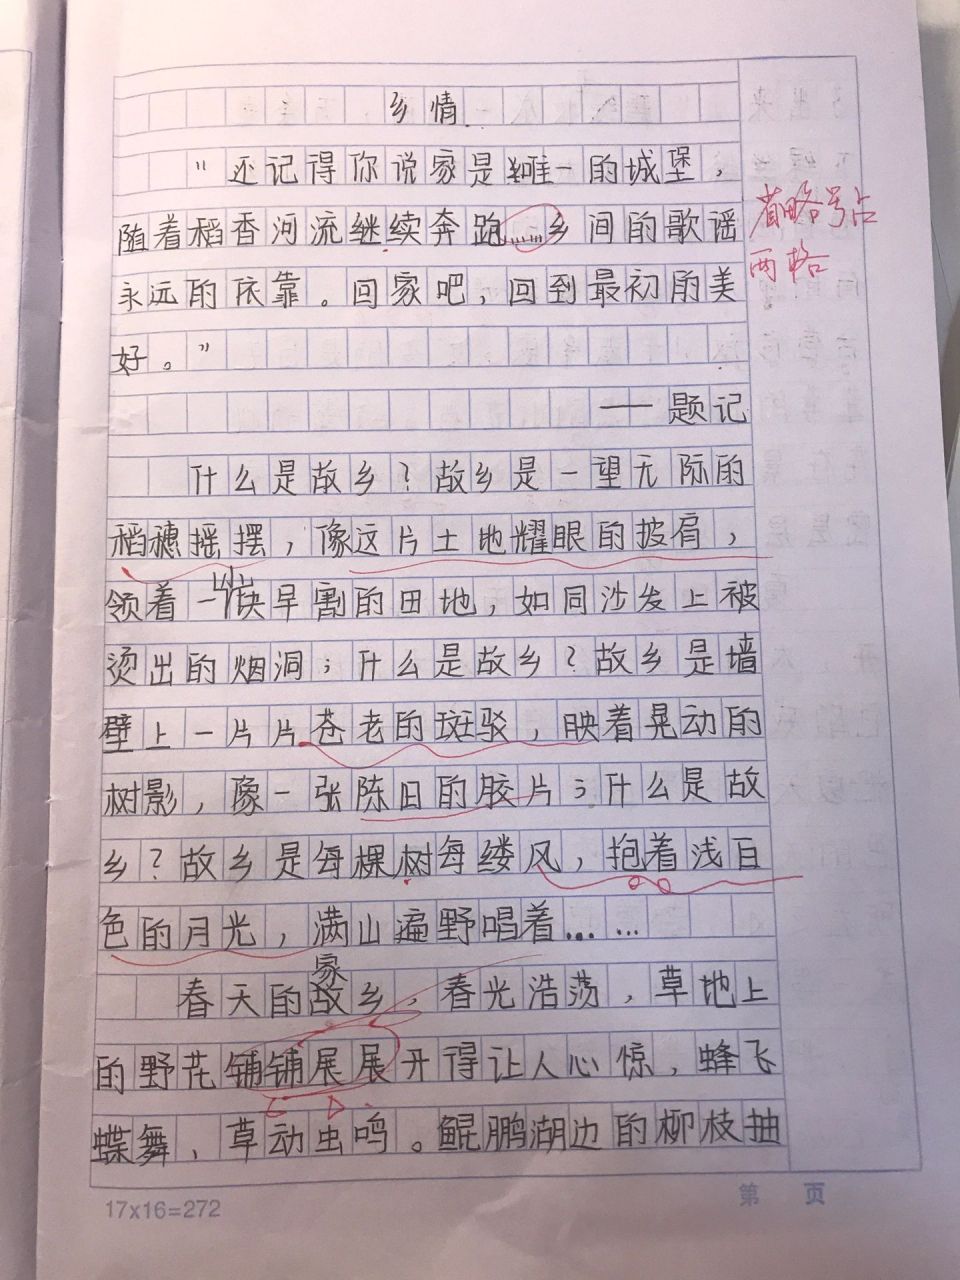 乡情
“还记得你说家是唯一的城堡，
随着稻香河流继续奔跑……乡间的歌谣
省略号占
永远的依靠。回家吧，回到最初的美
两格
好。”
——题记
什么是故乡？故乡是一望无际的
稻穗摇摆，像这片土地耀眼的披肩，
领着一块早割的田地，如同沙发上被
烫出的烟洞；什么是故乡？故乡是墙
壁上一片片苍老的斑驳，映着晃动的
树影，像一张陈旧的胶片；什么是故
乡？故乡是每棵树每缕风，抱着浅白
色的月光，满山遍野唱着……
家
春天的故乡，春光浩荡，草地上
的野花铺铺展展开得让人心惊，蜂飞
蝶舞、草动虫鸣。鲲鹏湖边的柳枝抽
17x16=272
第 页